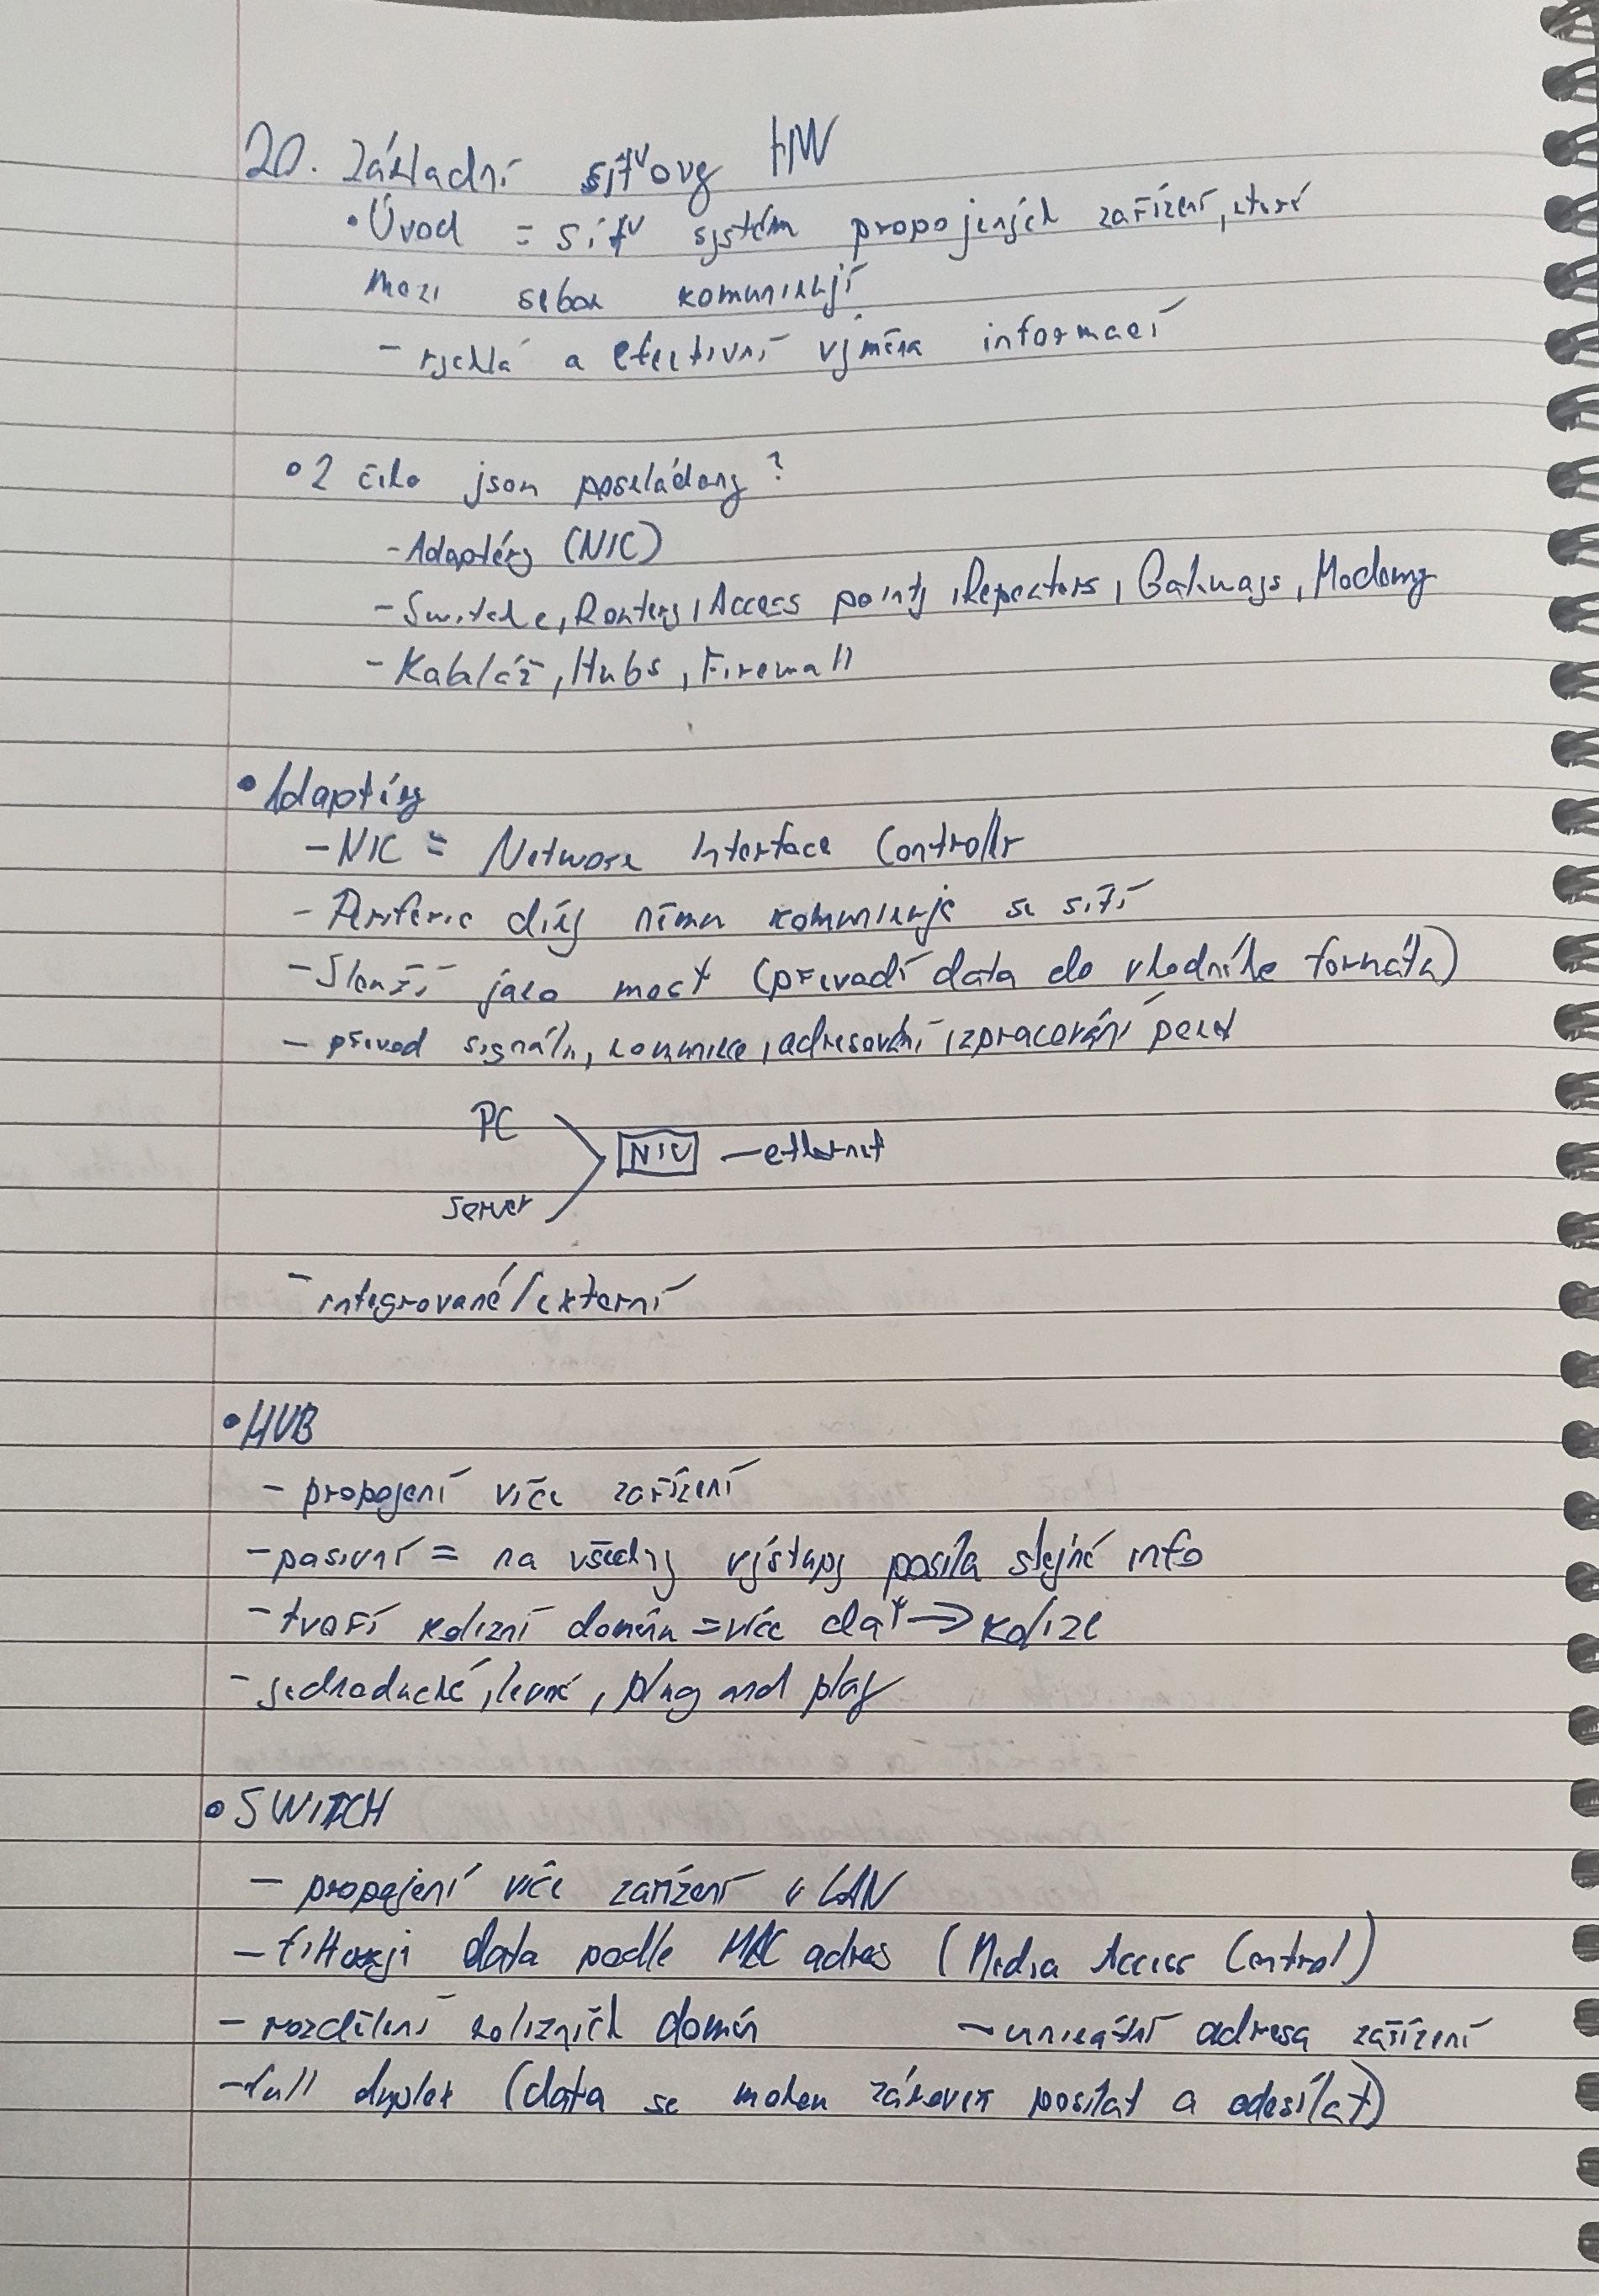 20. Základní síťový HW
• Úvod = síť systém propojených zařízení, které
mezi sebou komunikují
- rychlá a efektivní výměna informací
• Z čeho jsou poskládany?
- Adaptéry (NIC)
- Switche, Routery, Access pointy, Repeators, Gateways, Modemy
- Kabeláž, Hubs, Firewall
• Adaptéry
- NIC = Network Interface Controllr
- Periferie díky němu komunikuje se sítí
- Slouží jako most (převadí data do vhodného formátu)
- převod signálu, komunikce, adresování, zpracování paket
PC
NIC — ethernet
Server
- integrované/externí
• HUB
- propojení více zařízení
- pasivní = na všechny výstupy posíla stejné info
- tvoří kolizní doménu = více dat => kolize
- jednoduché, levné, plug and play
• SWITCH
- propojení více zařízení v LAN
- filtrují data podle MAC adres (Media Access Control)
- rozdělení kolizních domén - unikátní adresa zařízení
- full duplex (data se mohou zároveň posílat a odesílat)